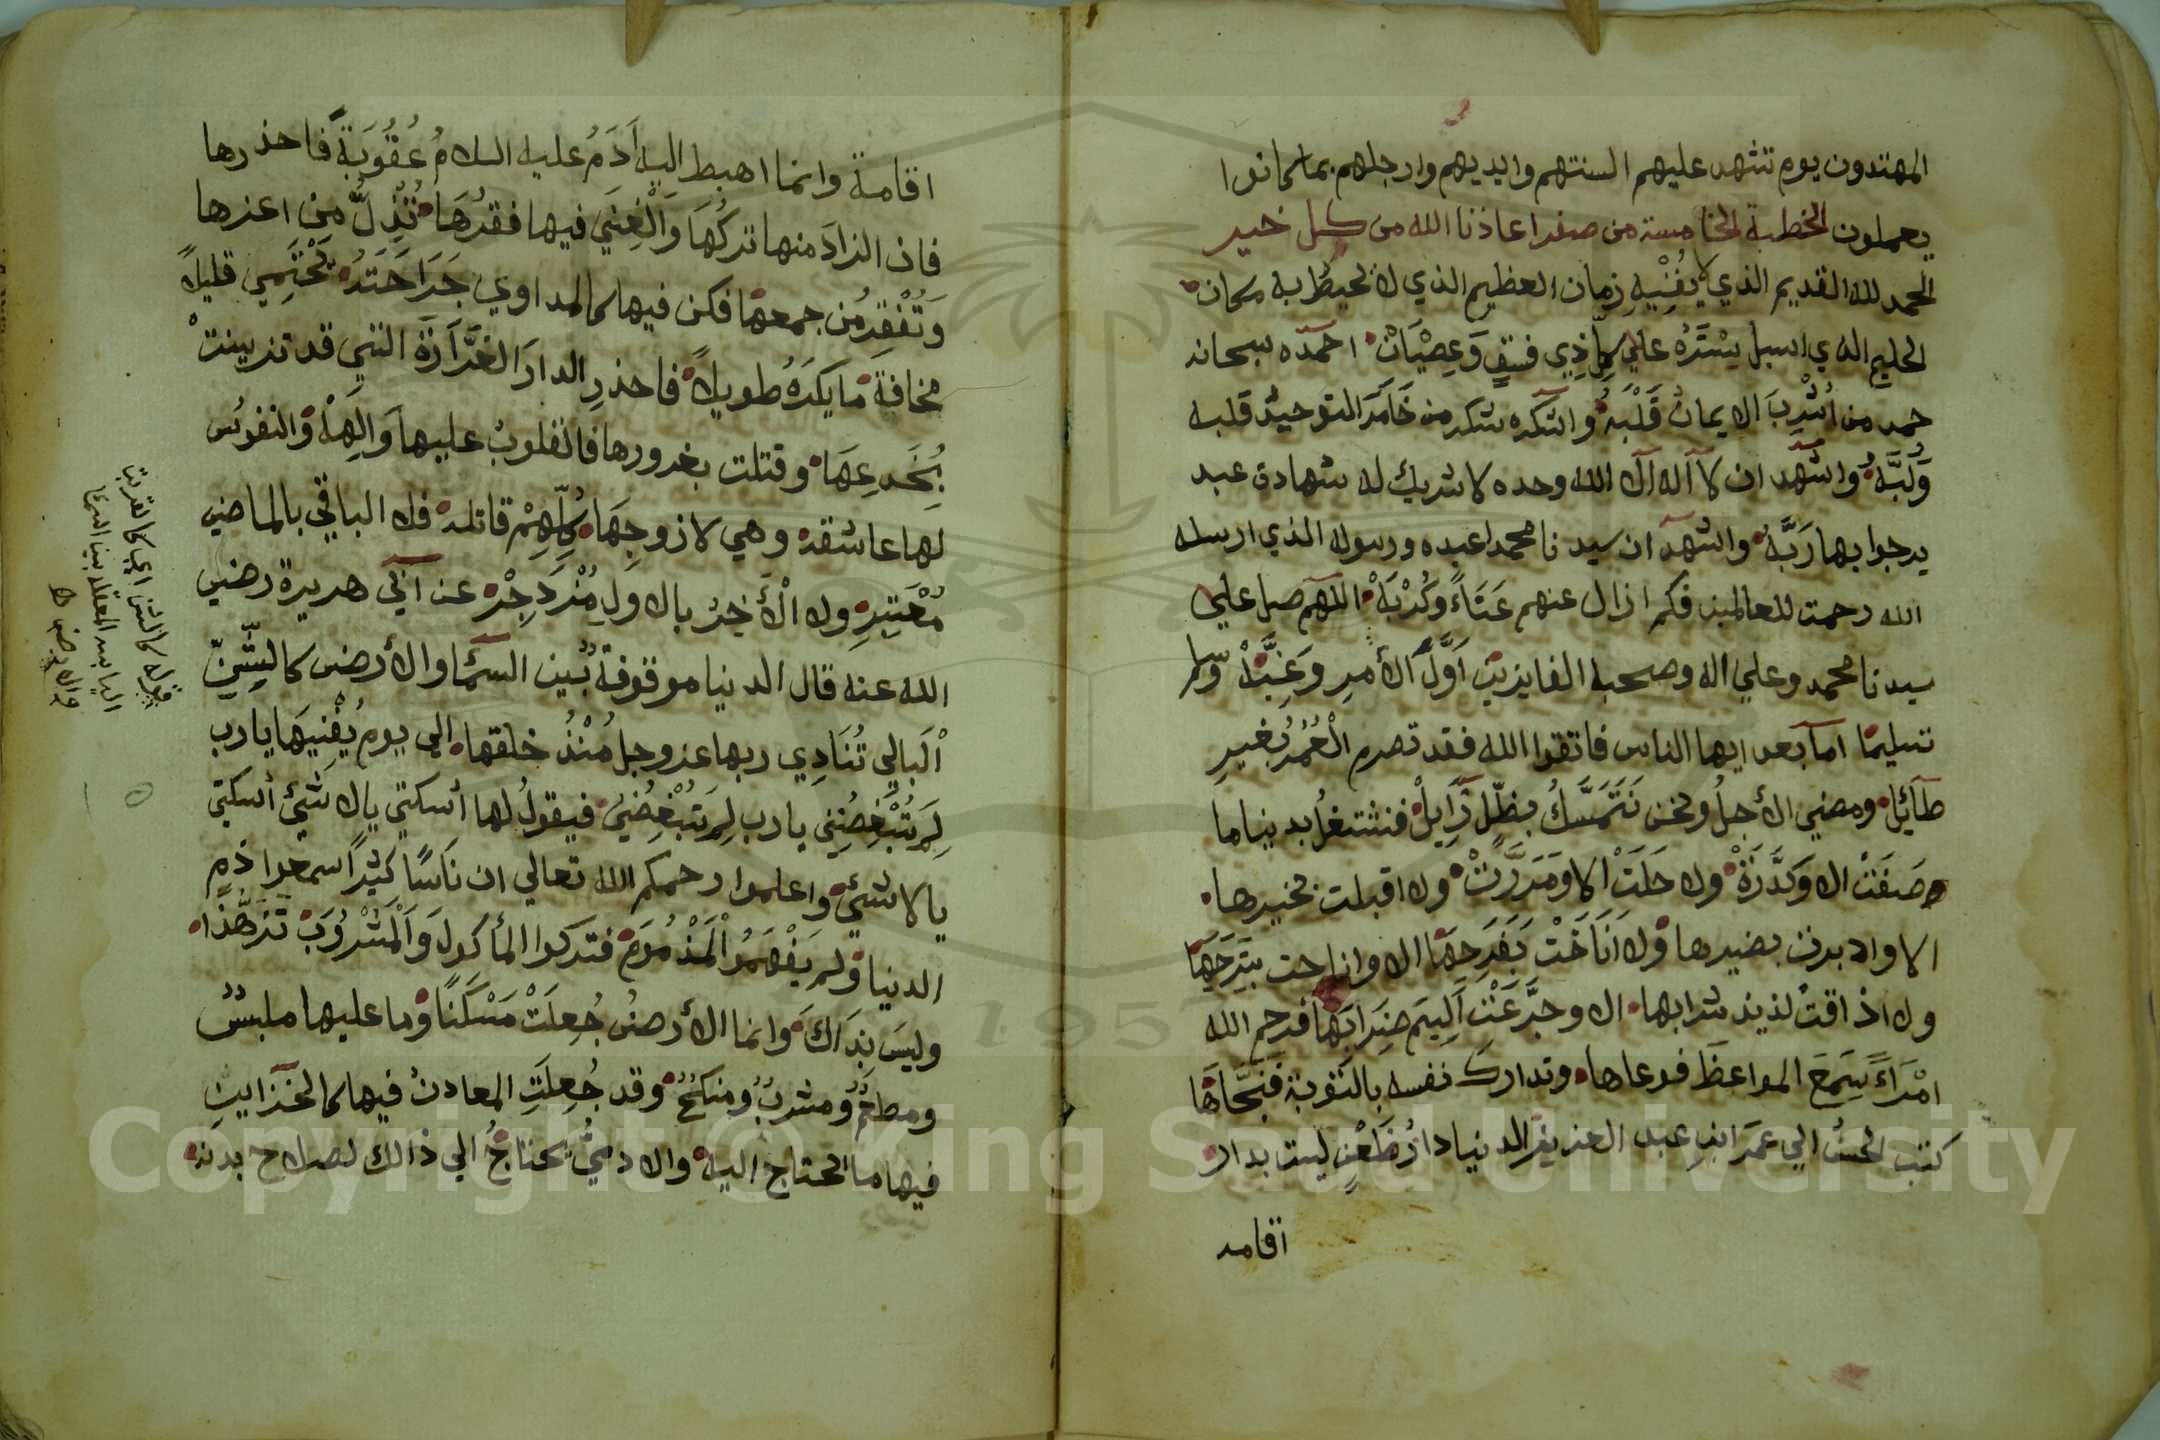 المهتدون يوم تشهد عليهم السنتهم وايديهم وارجلهم بما كانوا
يعملون الخطبة الخامسة من صفر اعاذنا الله من كل خير
الحمد لله القديم الذي لا يُفْنِيهِ زمان العظيم الذي لا تحيطُ به مكان
الحليم الذي اسبل بِسْتَرُهُ علي كلِّ ذِي فسقٍ وَعِصْيَانْ احمده سبحانه
حمد من اُشْرِبَ الايمانُ قَلْبَهُ واشكره شكر من خَامَرَ التوحيدُ قلبه
وَلُبَّهُ واشهد ان لا اله الا الله وحده لا شريك له شهادة عبد
يرجوا بها رَبَّهُ واشهد ان سيدنا محمدا عبده ورسوله الذي ارسله
الله رحمت للعالمين فكم ازال عنهم عَنَاءً وَكُرْبَةْ اللهم صل علي
سيدنا محمد وعلي اله وصحبه الفايزين اَوَّلَ الأمرِ وَغِبَّهْ وسلم
تسليما اما بعد ايها الناس فاتقوا الله فقد تصرم الْعُمْرُ بغيرِ
طآئِلٍ ومضي الأجلُ ونحن نَتَمَسَّكُ بظِلٍّ زَايِلْ فنشتغلُ بدنيا ما
صَفَتْ الا وَكَدَّرَةْ ولا حَلَتْ الا وَمَرَّرَتْ ولا اقبلت بخيرها
الا وادبرت بضيرها ولا اَنَاخَتْ بَفَرَحِهَا الا وانا حت بِتَرَحِهَا
ولا اذاقتْ لذيذ شرابها الا وجرَّعَتْ اَلِيمَ ضِرَابَهَا فرحم الله
امْرَاءً سَمِعَ المواعظَ فوعاها وتدارك نفسه بالتوبة فَنَجَّاهَا
كتب الحسنُ الي عمرَ ابنِ عبد العزيز الدنيا دارُ ظَعْنٍ ليست بدار
اقامه
اقامة وانما اهبط اليه اَدَمُ عليه السلامُ عُقُوبَةً فاحذرها
فان الزادَ منها تركُهَا وَالْغِنَي فيها فقرُهَا تُذِلُّ من اعزها
وَتُفْقِرُ من جمعها فكن فيها كالمداوي جَرَاحَتَهُ يَحْتَمِي قليلاً
مخافة ما يكرَهُ طويلاً فاحذرِ الدارَ الغَرَّارَةَ التي قد تزينتْ
بُخَدعِهَا وقتلت بغرورها فالقلوبُ عليها وَالِهَةْ والنفوسُ
لها عاشقة وهي لازوجِهَا كُلِّهِمْ قاتلة فلا الباقي بالماضي
مُعْتَبِرْ ولا الْأَخِرُ بالاولِ مُنْزَدِجِرْ عن ابي هريرة رضي
الله عنه قال الدنيا موقوفة بين السما والأرض كالشِّنِّ
الْبَالي تُنَادِي ربها عز وجل مُنْذُ خلقها الي يومِ يُفْنِيهَا يا رب
لِمَ تُبْغِضُنِي يا رب لِمَ تُبْغِضُنِي فيقولُ لها أسكتي يا لا شئْ أسكتي
يا لا شئ واعلموا رحمكم الله تعالي ان نَاسًا كثيراً سمعوا ذم
الدنيا ولم يفهمُوا الْمَذْمُومَ فتركوا المأكولَ وَالْمَشْرُوَبَ تَزَهُّدًا
وليسَ بِذَاكَ وانما الأرضُ جُعِلَتْ مَسْكَنًا وما عليها ملبسٌ
ومطعمٌ ومشربٌ ومنكحٌ وقد جُعِلَتِ المعادنُ فيها كالخزاينِ
فيها ما يحتاج اليه والادميُّ يحتاجُ الي ذالك لصلاح بدنه
قوله كالشن اي كالقربة
اليابسه المعلقه بين السما
والارض
Copyright © King Saud University
1957